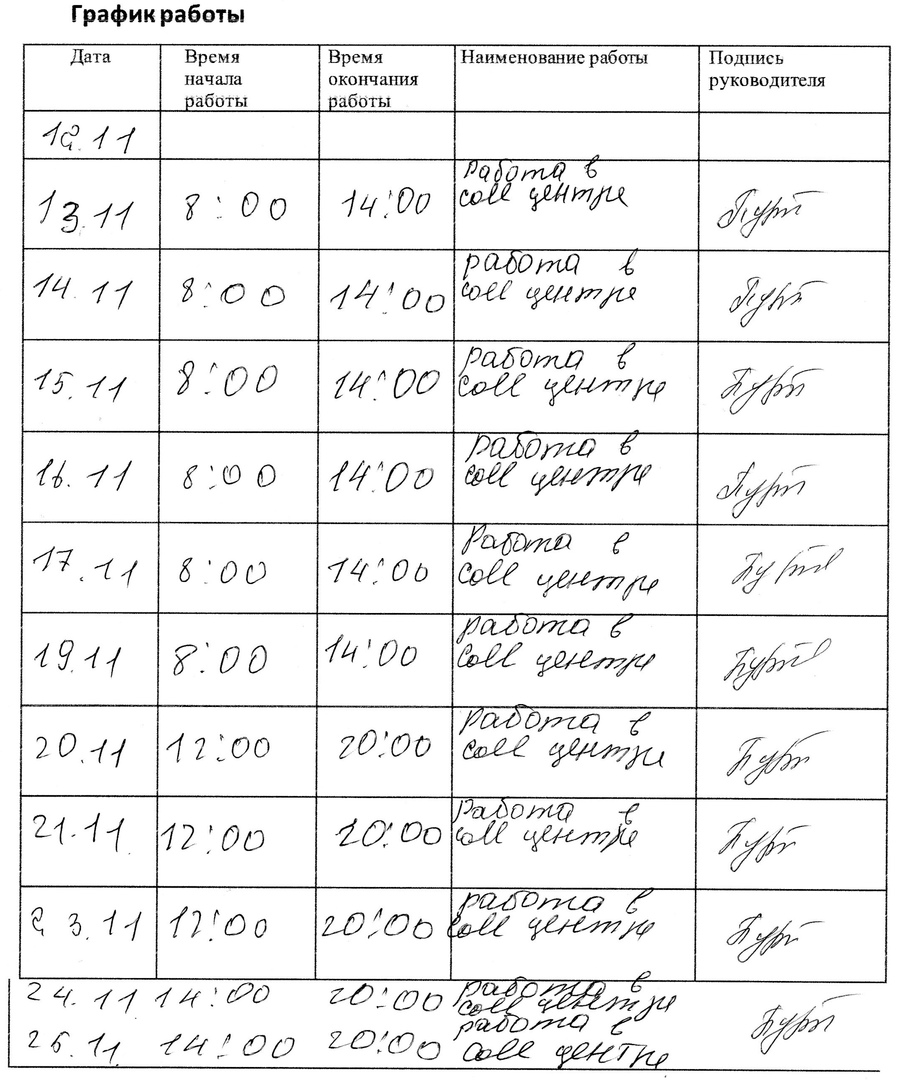 График работы
Дата
Время
начала
работы
Время
окончания
работы
Наименование работы
Подпись
руководителя
12.11
13.11 8:00 14:00 Работа в
coll центре
14.11 8:00 14:00 работа в
coll центре
15.11 8:00 14:00 работа в
coll центре
16.11 8:00 14:00 работа в
coll центре
17.11 8:00 14:00 Работа в
coll центре
19.11 8:00 14:00 работа в
coll центре
20.11 12:00 20:00 работа в
coll центре
21.11 12:00 20:00 Работа в
coll центре
23.11 12:00 20:00 работа в
coll центре
24.11 14:00 20:00 работа в
coll центре
14:00 20:00 работа в
coll центре